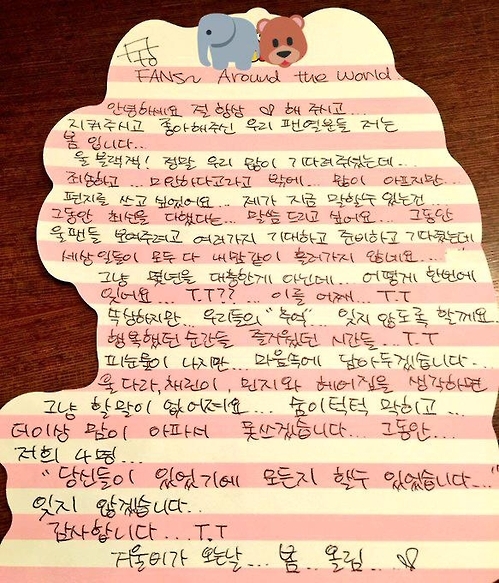 FANS~ Around the world.
안녕하세요 절 항상 ♡ 해 주시고...
지켜주시고 좋아해주신 우리 팬여러분들 저는
봄 입니다...
울 블랙잭! 정말 우리 많이 기다려주셨는데...
죄송하고... 미안하다고라고 밖에... 많이 아프지만...
편지를 쓰고 싶었어요... 제가 지금 말할수 있는건...
그동안 최선을 다했다는... 말씀 드리고 싶어요... 그동안
울팬들 보여주려고 여러가지 기대하고 준비하고 기다렸는데
세상일들이 모두 다 내맘같이 흘러가지 않네요...
그냥 몇년을 대충한게 아닌데... 어떻게 한번에
잊어요... T.T?? ... 이를 어째... T.T
속상하지만... 우리들의 "추억"... 잊지 않도록 할께요..
행복했던 순간들 즐거웠던 시간들... T.T
피눈물이 나지만... 마음속에 담아두겠습니다..
울 다라,채린이, 민지와 헤어짐을 생각하면
그냥 할말이 없어져요... 숨이턱턱 막히고...
더이상 맘이 아파서 못쓰겠습니다... 그동안...
저희 4명...
"당신들이 있었기에 모든지 핼수 있었습니다..."
잊지 않겠습니다..
감사합니다... T.T
겨울비가 오는날... 봄.. 올림... ♡